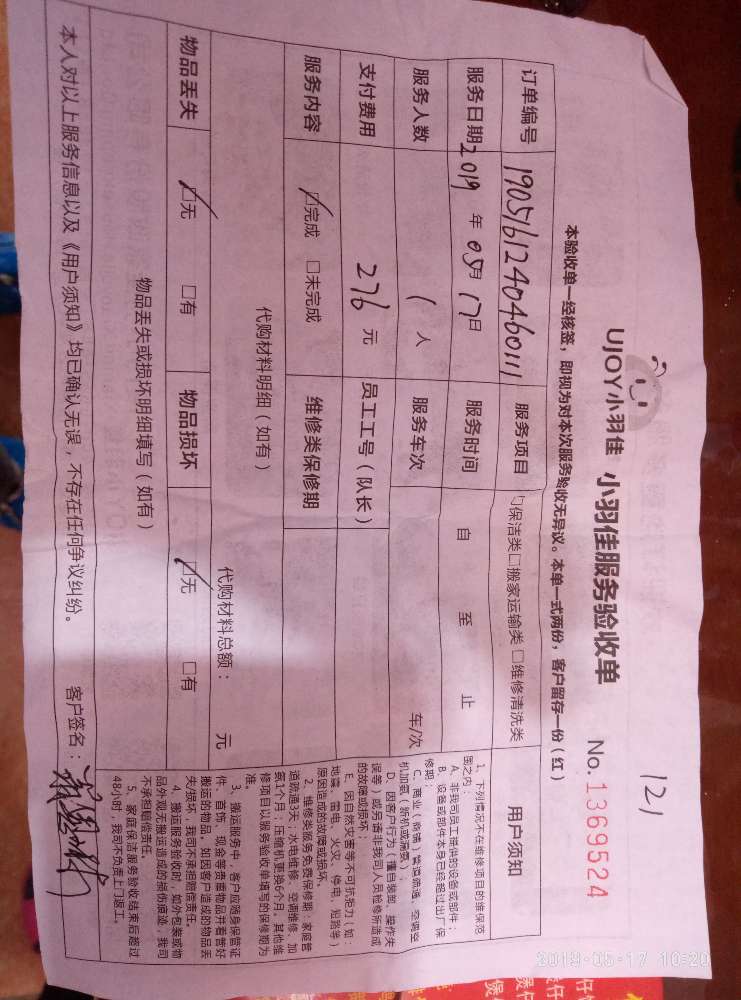 121
UJOY小羽佳 小羽佳服务验收单
No. 1369524
本验收单一经核签，即视为对本次服务验收无异议。本单一式两份，客户留存一份（红）
订单编号 1905161240460111 服务项目 保洁类 □搬家运输类 □维修清洗类
服务日期 2019 年 05月 17日 服务时间 自 至 止
服务人数 1 人 服务车次 车/次
支付费用 276 元 员工工号（队长）
服务内容 ☑完成 □未完成 维修类保修期
代购材料明细（如有）
代购材料总额： 元
物品丢失 ☑无 □有 物品损坏 ☑无 □有
物品丢失或损坏明细填写（如有）
用户须知
1、下列情况不在维修项目的维保范
围之内：
A、非我司员工提供的设备或部件；
B、设备或部件本身已经超过出厂保
修期；
C、商业（商铺）管道疏通，空调空
机加氨（拆机或漏氨）；
D、因客户行为（擅自装卸、操作失
误等）或另请非我司人员检修所造成
的故障或损坏；
E、因自然灾害等不可抗拒力（如：
地震、雷电、水灾、火灾、停电、短路等）
原因造成的故障或损坏。
2、维修类服务免费保修期：家庭管
道疏通3天；水电维修、空调维修、加
氨1个月；压缩机更换6个月。其他维
修项目以服务验收单填写的保修期为
准。
3、搬运服务中，客户应随身保管证
件、首饰、现金等贵重物品并看管好
搬运的物品。如因客户造成的物品丢
失/损坏，我司不承担赔偿责任。
4、搬运服务验收时，如外包装或物
品外观无搬运造成的损伤痕迹，我司
不承担赔偿责任。
5、家庭保洁服务验收结束后超过
48小时，我司不负责上门返工。
本人对以上服务信息以及《用户须知》均已确认无误，不存在任何争议纠纷。 客户签名：
2019-05-17 10:20